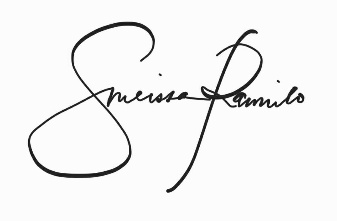 Smeissa Ramilo